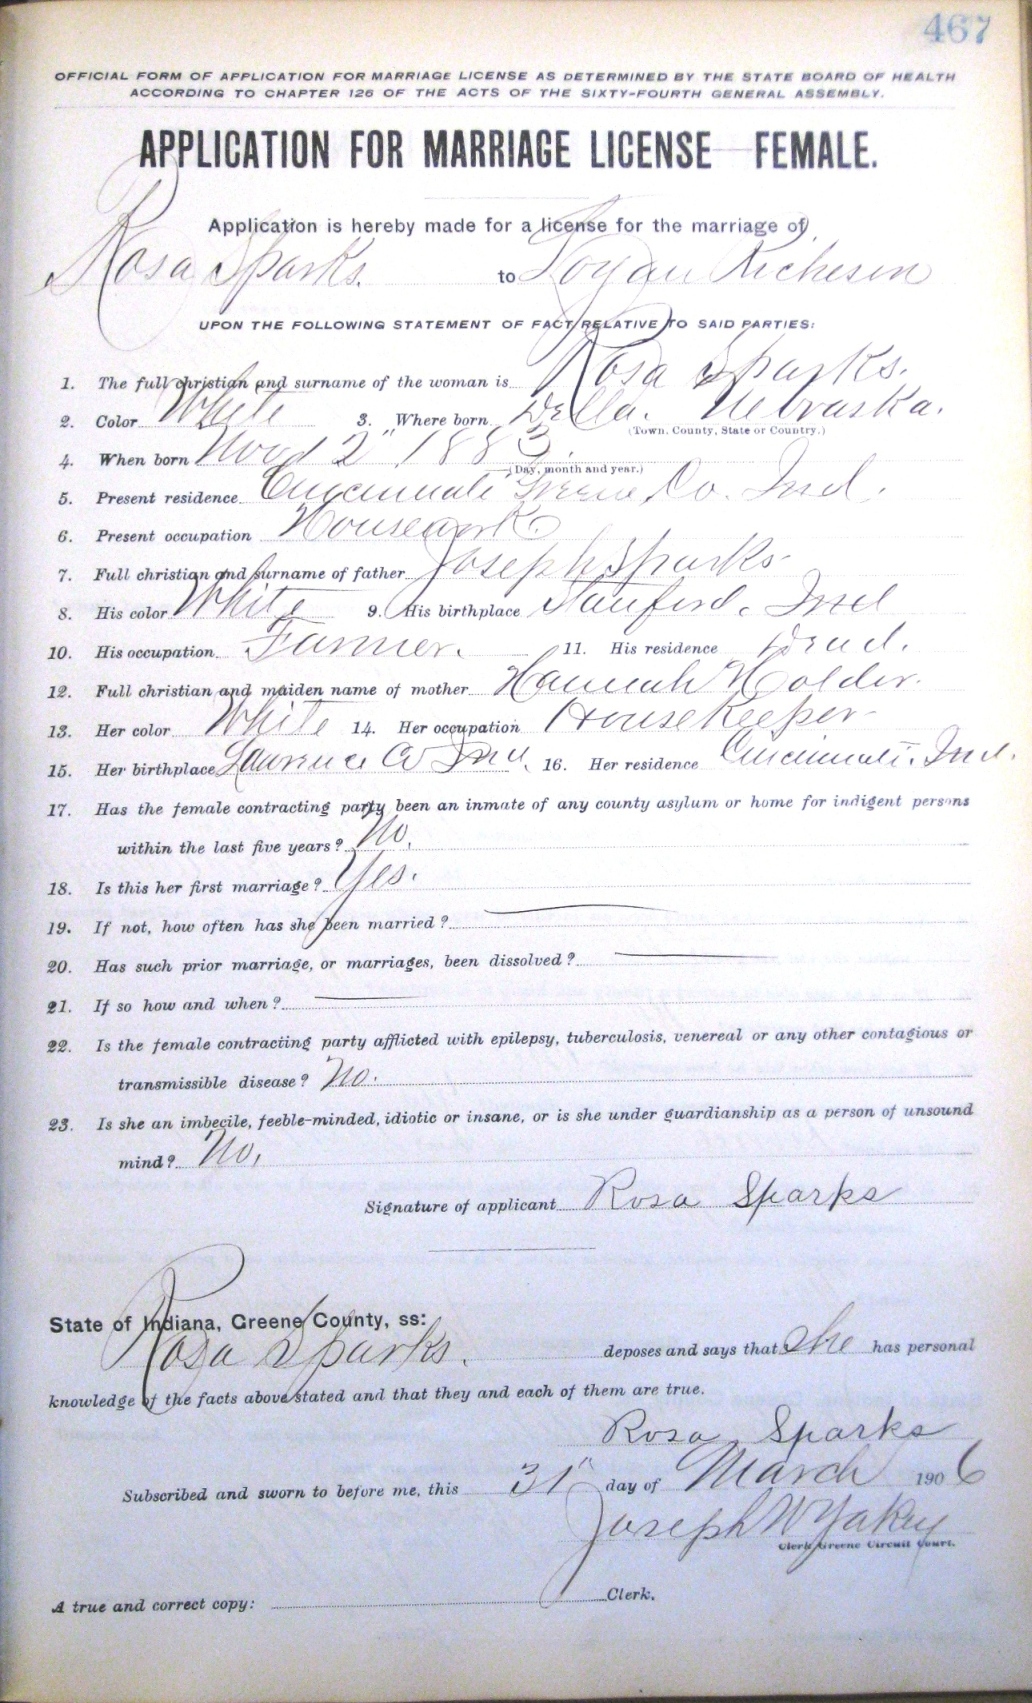 467
OFFICIAL FORM OF APPLICATION FOR MARRIAGE LICENSE AS DETERMINED BY THE STATE BOARD OF HEALTH
ACCORDING TO CHAPTER 126 OF THE ACTS OF THE SIXTY-FOURTH GENERAL ASSEMBLY.
APPLICATION FOR MARRIAGE LICENSE FEMALE.
Application is hereby made for a license for the marriage of
Rosa Sparks. to Logan Richeson
UPON THE FOLLOWING STATEMENT OF FACT RELATIVE TO SAID PARTIES:
1. The full christian and surname of the woman is Rosa Sparks.
2. Color White 3. Where born Nebraska.
(Town, County, State or Country.)
4. When born Nov 2" 1883.
(Day, month and year.)
5. Present residence Cincinnati Greene Co. Ind.
6. Present occupation Housework
7. Full christian and surname of father Joseph Sparks
8. His color White 9. His birthplace Stanford, Ind
10. His occupation Farmer. 11. His residence Dead.
12. Full christian and maiden name of mother Hannah Holder.
13. Her color White 14. Her occupation HouseKeeper
15. Her birthplace Laurence Co Ind. 16. Her residence Cincinnati, Ind.
17. Has the female contracting party been an inmate of any county asylum or home for indigent persons
within the last five years? No.
18. Is this her first marriage? Yes.
19. If not, how often has she been married?
20. Has such prior marriage, or marriages, been dissolved?
21. If so how and when?
22. Is the female contracting party afflicted with epilepsy, tuberculosis, venereal or any other contagious or
transmissible disease? No.
23. Is she an imbecile, feeble-minded, idiotic or insane, or is she under guardianship as a person of unsound
mind? No,
Signature of applicant Rosa Sparks
State of Indiana, Greene County, ss:
Rosa Sparks. deposes and says that She has personal
knowledge of the facts above stated and that they and each of them are true.
Rosa Sparks
Subscribed and sworn to before me, this 31" day of March 1906
Joseph W Yakey
Clerk Greene Circuit Court.
A true and correct copy: Clerk.